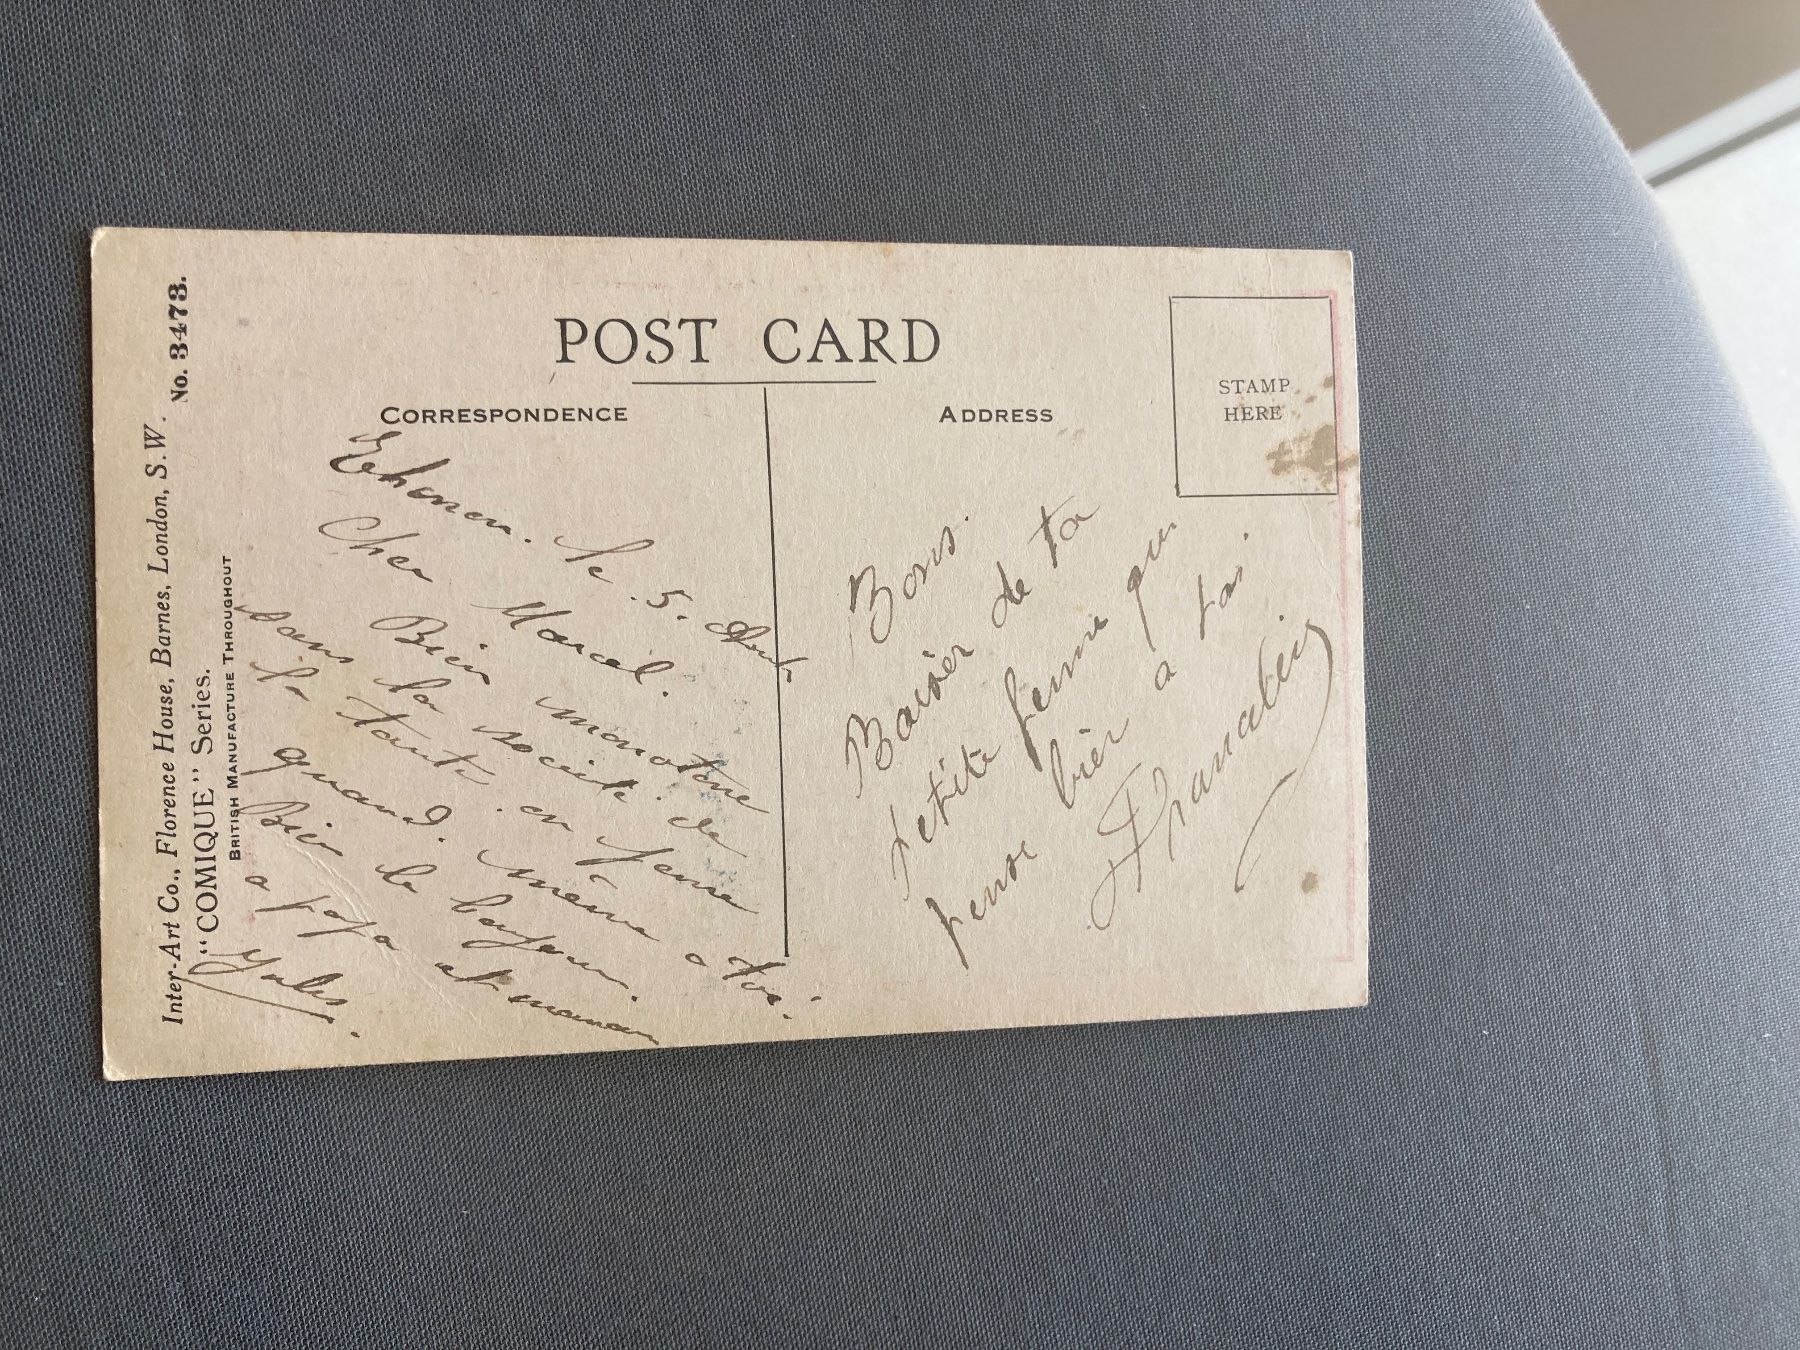 POST CARD
CORRESPONDENCE
ADDRESS
STAMP
HERE
Inter-Art Co., Florence House, Barnes, London, S.W.
"COMIQUE" Series.
No. 3473.
BRITISH MANUFACTURE THROUGHOUT
le 5.
Cher Marcel.
Bien monotone
dans la société de
la tante en
quand même a toi.
Bien le bonjour
a papa et maman
Jules.
Bons
Baisér de ta
petite femme qui
pense bien a toi